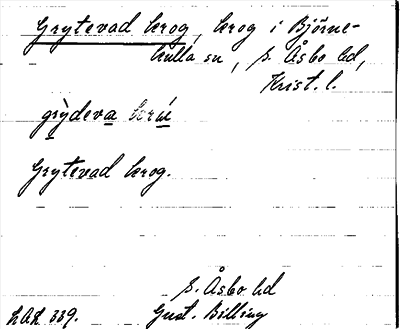 Grytevad krog, krog i Björne-
kulla sn, S. Åsbo hd,
Krist. l.
grỳdeva krú
Grytevad krog.
S. Åsbo hd
LAL 339. Gust. Billing